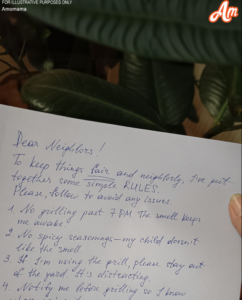 FOR ILLUSTRATIVE PURPOSES ONLY
Amomama
Am
Dear Neighbors!
To keep things fair and neighborly, I've put
together some simple RULES.
Please, follow to avoid any issues.
1. No grilling past 7 PM. The smell keeps
me awake
2. No spicy seasonings — my child doesn't
like the smell
3. If I'm using the grill, please stay out
of the yard. It's distracting.
4. Notify me before grilling so I know